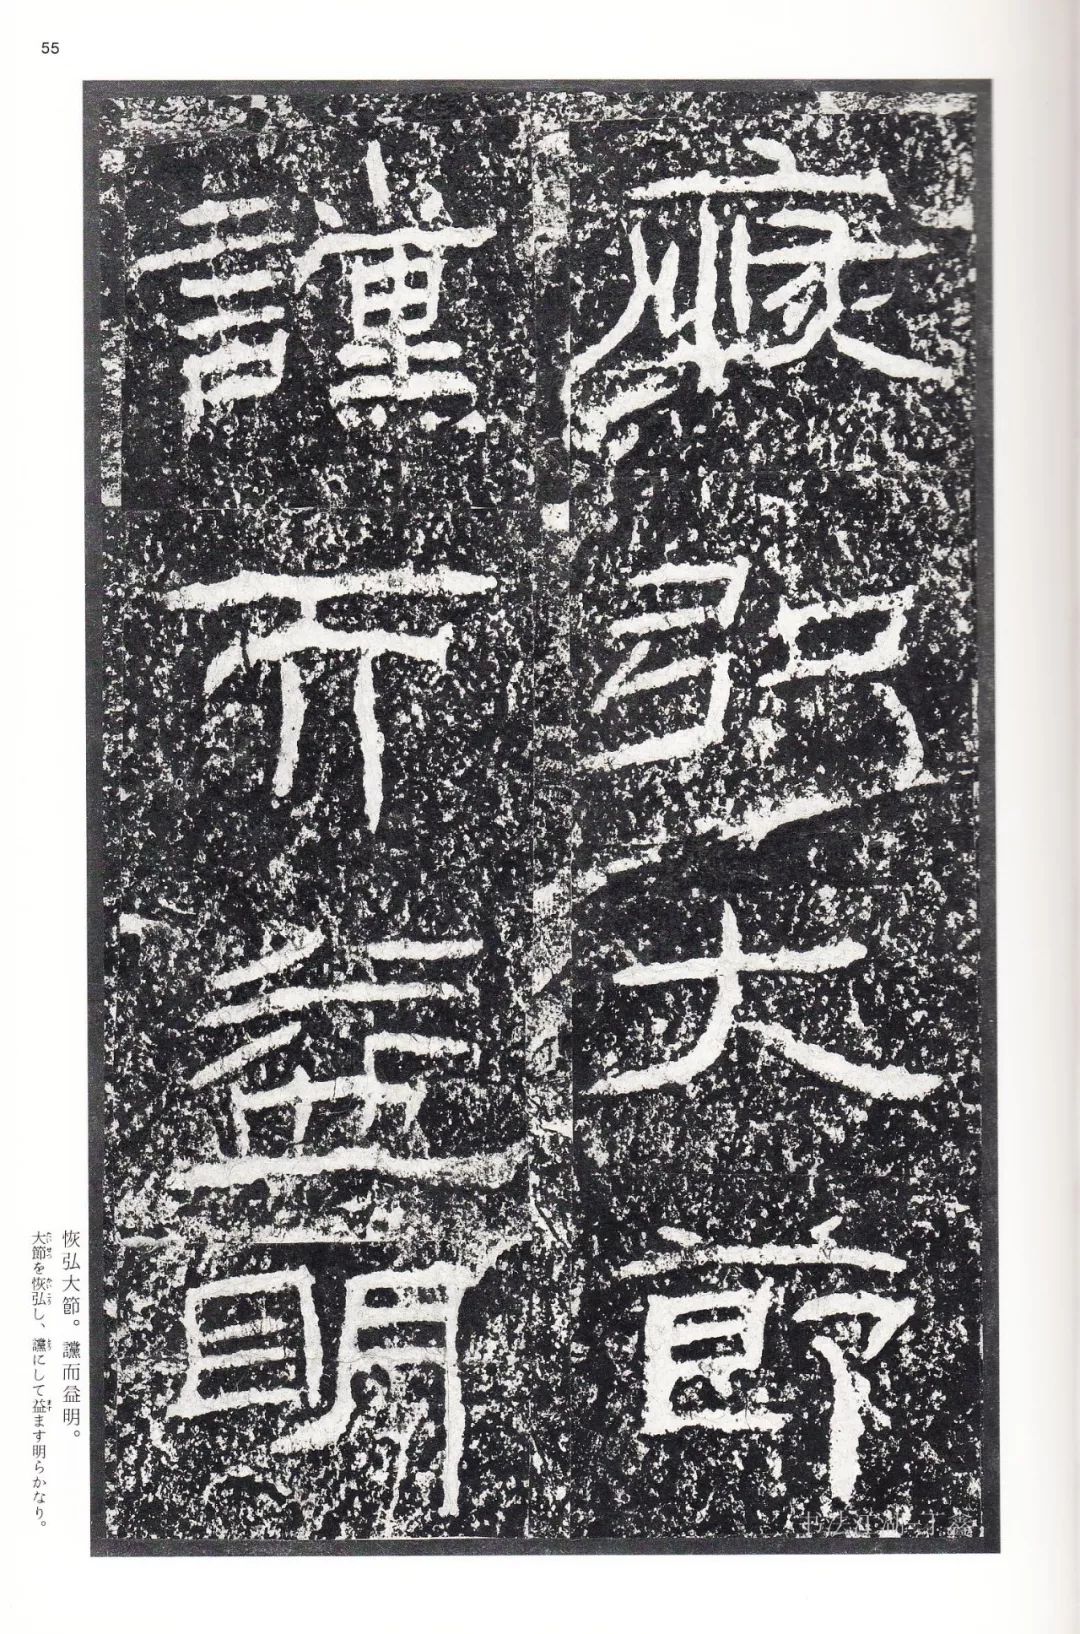 55
恢弘大節
讜而益明
恢弘大節。讜而益明。
大節を恢弘し、讜にして益ます明らかなり。